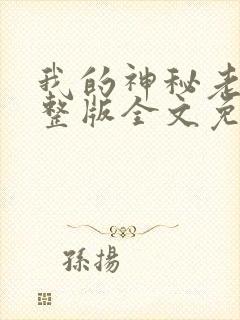 我的神秘老
整版全文免
孫揚